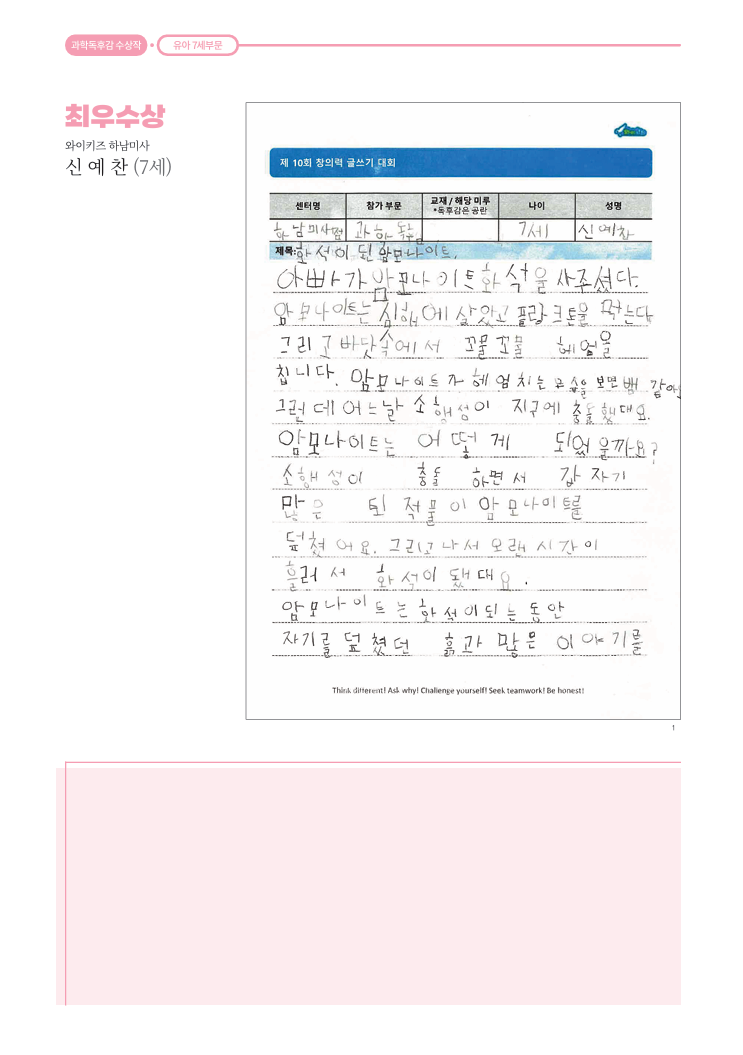 과학독후감 수상작
유아 7세부문
최우수상
와이키즈 하남미사
신 예 찬 (7세)
제 10회 창의력 글쓰기 대회
센터명 참가 부문 교재 / 해당 미루 나이 성명
*독후감은 공란
하남미사점 과학독후감 7세 신예찬
제목: 화석이 된 암모나이트.
아빠가 암모나이트 화석을 사주셨다.
암모나이트는 심해에 살았고 플랑크톤을 먹는다
그리고 바닷속에서 꼬물꼬물 헤엄을
칩니다. 암모나이트가 헤엄치는 모습을 보면 뱀 같아
그런데 어느날 소행성이 지구에 충돌했대요.
암모나이트는 어떻게 되었을까요?
소행성이 충돌하면서 갑자기
많은 퇴적물이 암모나이트를
덮쳤어요. 그리고 나서 오랜 시간이
흘러서 화석이 됐대요.
암모나이트는 화석이 되는 동안
자기를 덮쳤던 흙과 많은 이야기를
Think different! Ask why! Challenge yourself! Seek teamwork! Be honest!
1